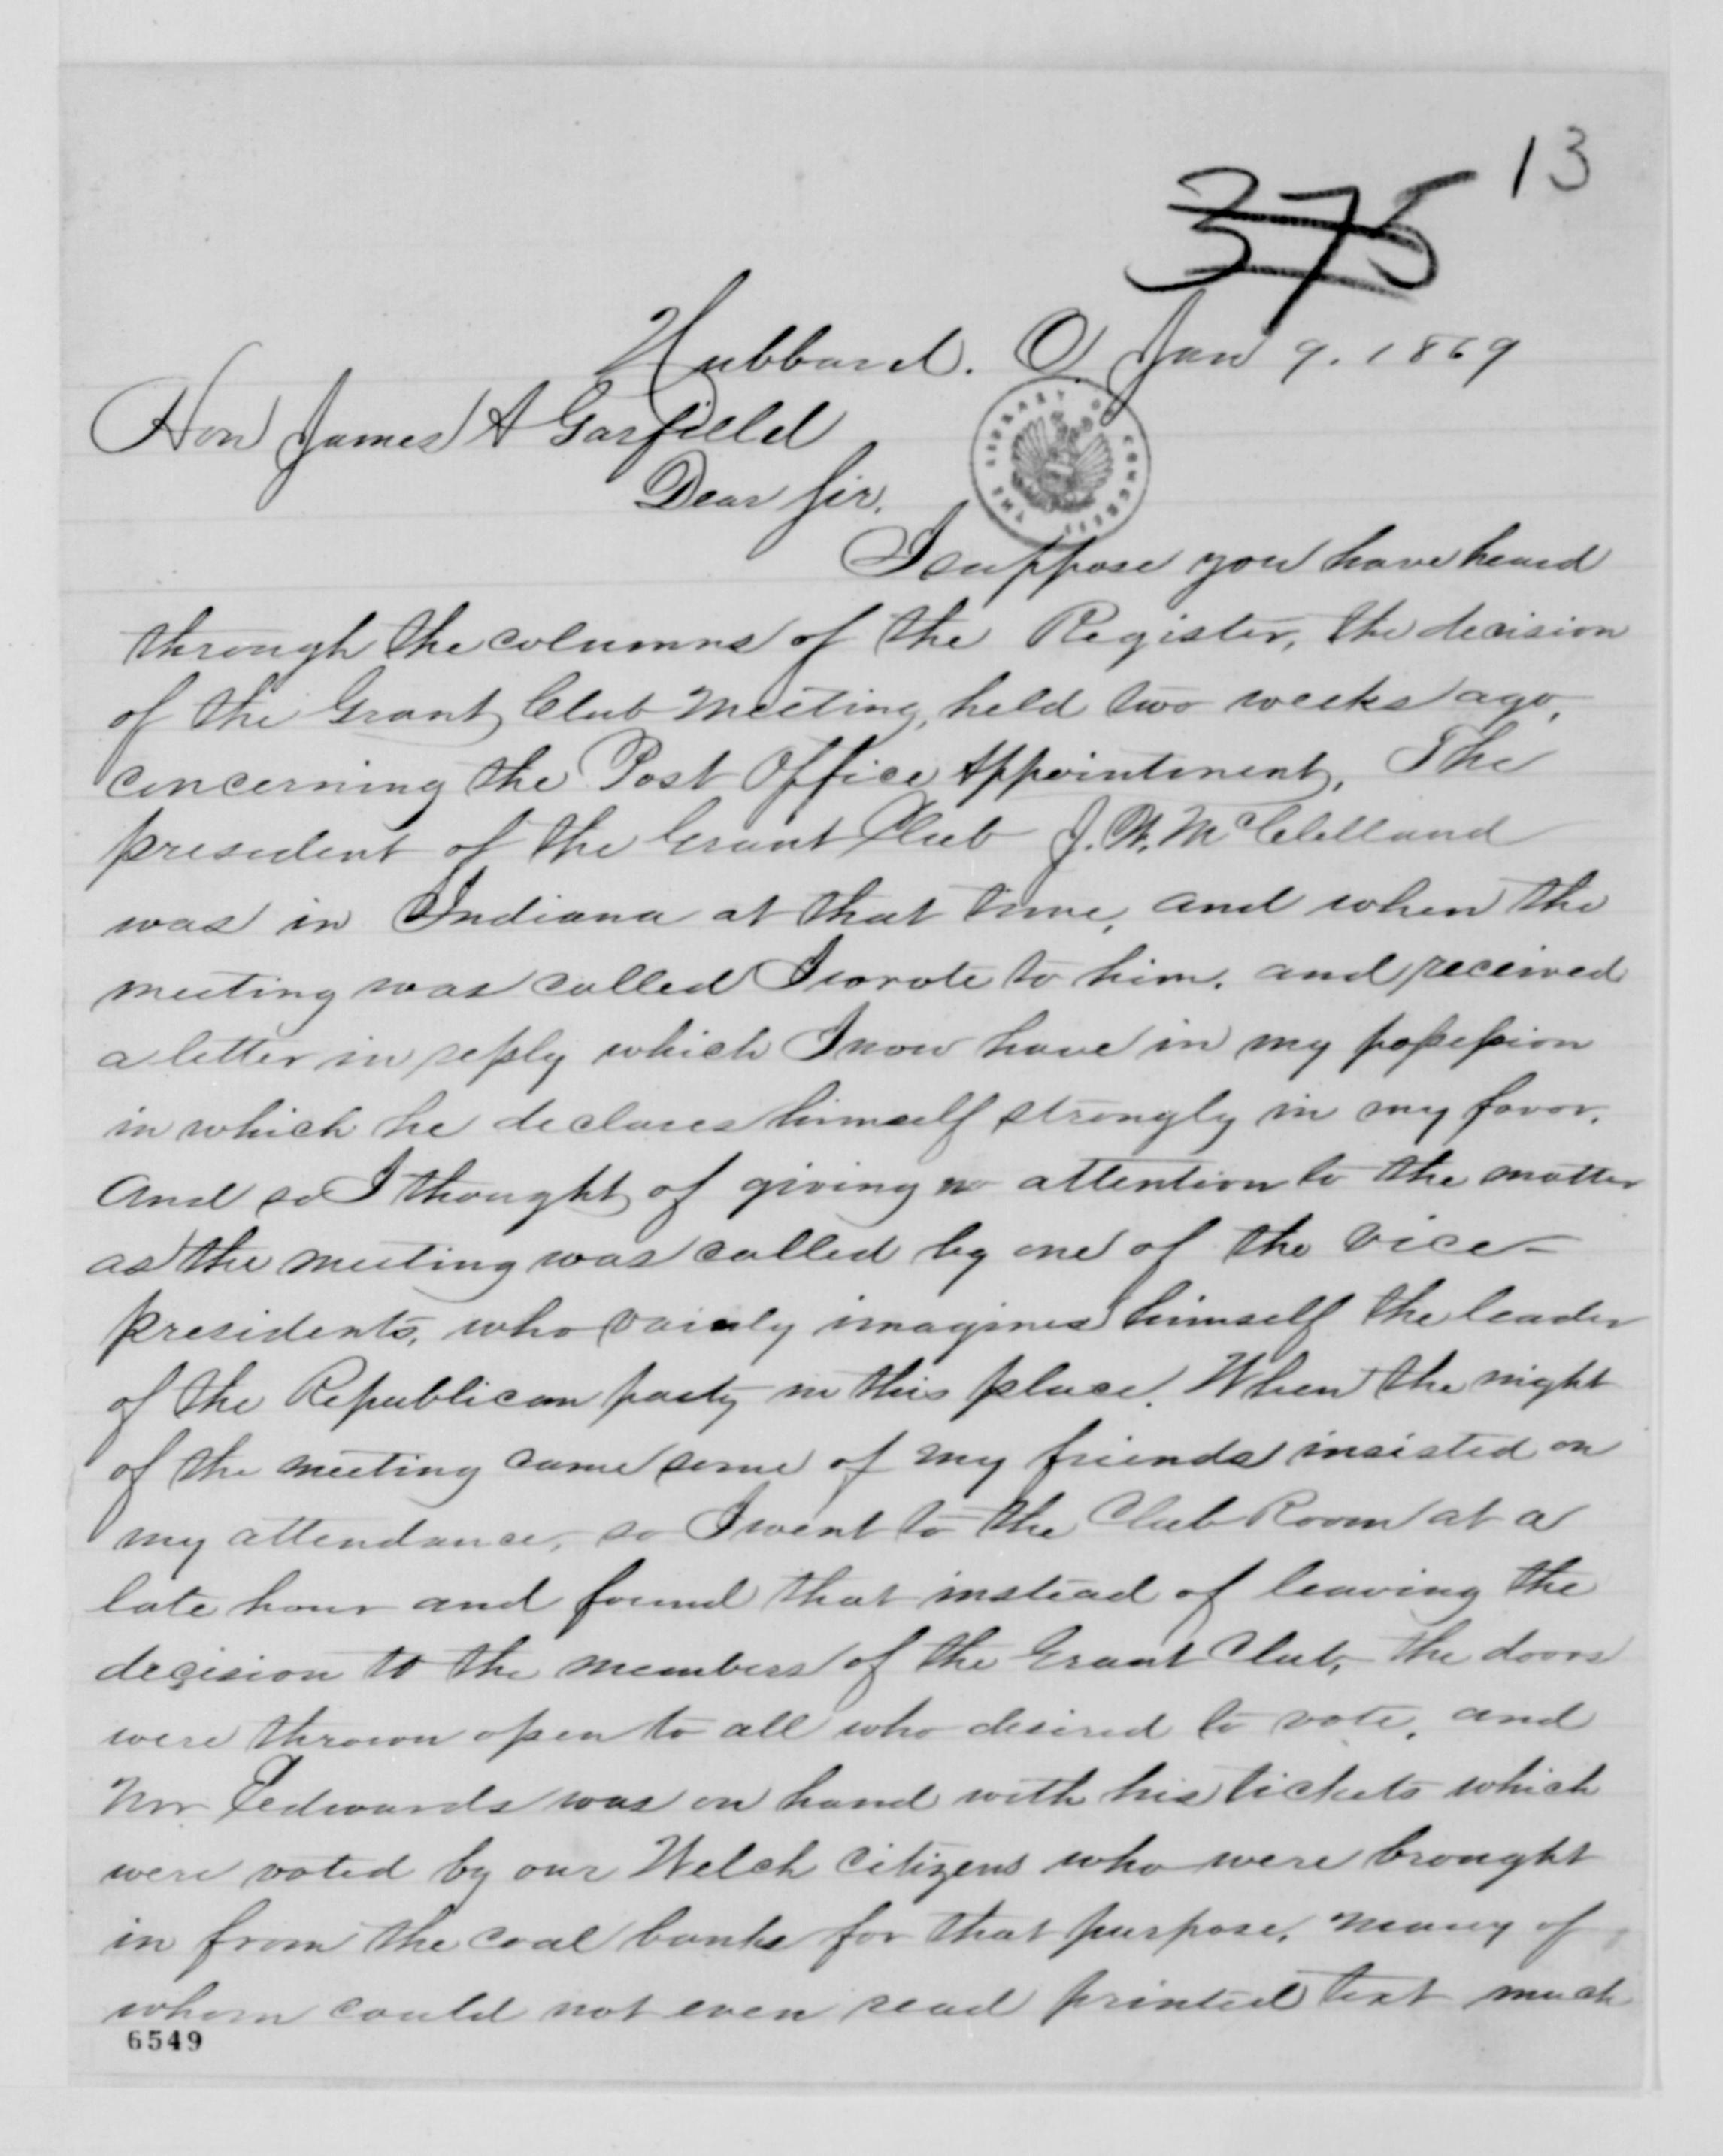 13
375
Hubbard. O. Jan 9. 1869
Hon James A Garfield
Dear Sir.
THE LIBRARY OF CONGRESS
I suppose you have heard
through the columns of the Register, the decision
of the Grant Club Meeting, held two weeks ago,
concerning the Post Office Appointment. The
president of the Grant Club J. W. McClelland
was in Indiana at that time, and when the
meeting was called I wrote to him, and received
a letter in reply which I now have in my possession
in which he declares himself strongly in my favor.
And so I thought of giving no attention to the matter
as the meeting was called by one of the vice-
presidents, who vainly imagines himself the leader
of the Republican party in this place. When the night
of the meeting came some of my friends insisted on
my attendance, so I went to the Club Room at a
late hour and found that instead of leaving the
decision to the members of the Grant Club, the doors
were thrown open to all who desired to vote, and
Mr Edwards was on hand with his tickets which
were voted by our Welch citizens who were brought
in from the coal banks for that purpose, many of
whom could not even read printed text much
6549